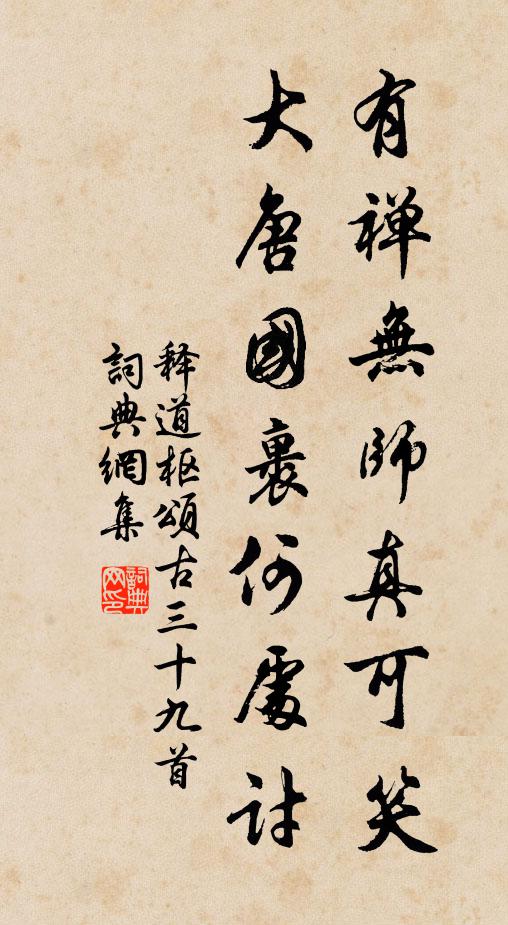 有禅無師真可笑
大唐國裏何處討
释道枢頌古三十九首
詞典網集
詞典网印